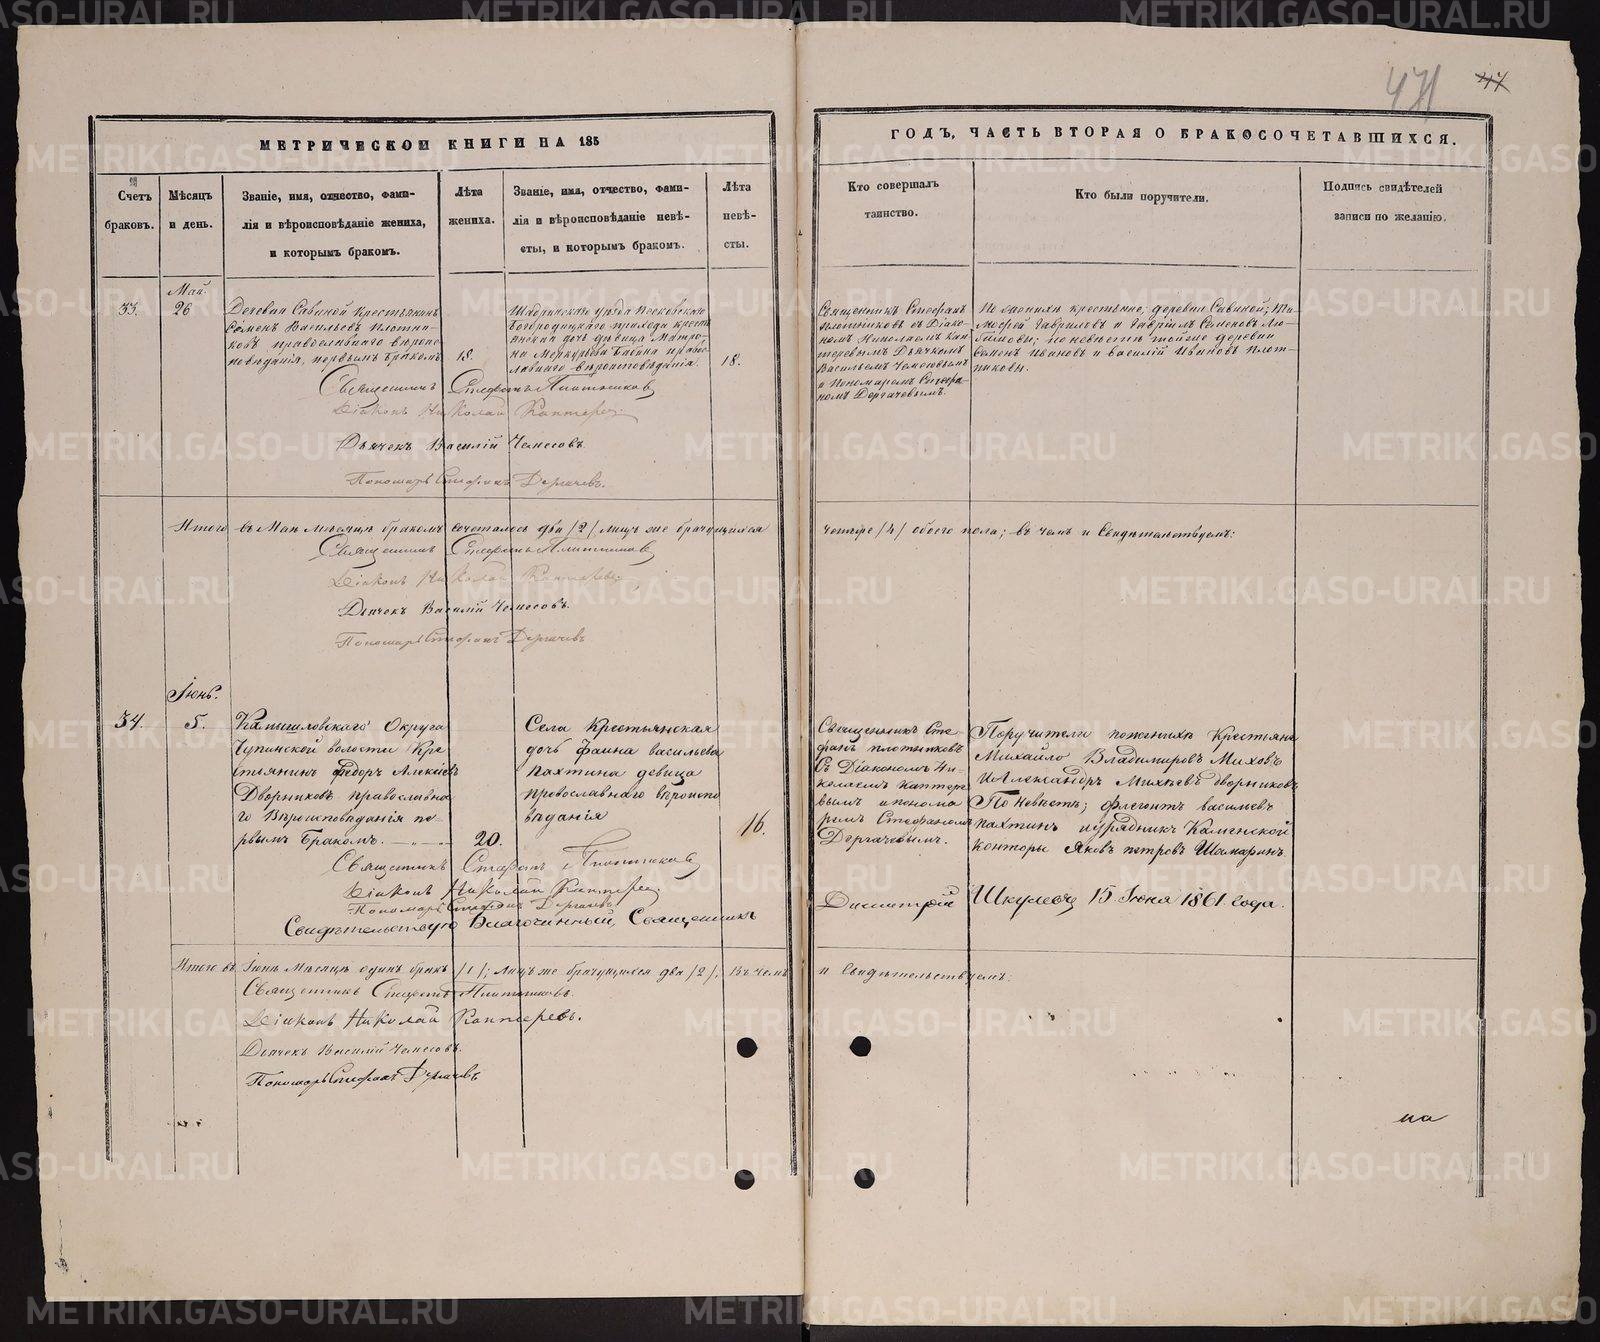 471 47
МЕТРИЧЕСКОЙ КНИГИ НА 185
ГОДЪ, ЧАСТЬ ВТОРАЯ О БРАКОСОЧЕТАВШИХСЯ.
Счетъ
браковъ.
Мѣсяцъ
и день.
Званіе, имя, отчество, фами-
лія и вѣроисповѣданіе жениха,
и которымъ бракомъ.
Лѣта
жениха.
Званіе, имя, отчество, фами-
лія и вѣроисповѣданіе невѣ-
сты, и которымъ бракомъ.
Лѣта
невѣ-
сты.
Кто совершалъ
таинство.
Кто были поручители.
Подпись свидѣтелей
записи по желанію.
33.
Май.
26
Деревни Савиной Крестьянинъ
Семенъ Васильевъ Плотни-
ковъ православнаго вѣроис-
повѣданія, первымъ бракомъ
18.
Шадринскаго уѣзда Песковскаго
Богородицкаго прихода крестъ
янская дочь дѣвица Матро-
на Меркурьева Бабина право-
славнаго вѣроисповѣданія.
18.
Священникъ Стефанъ
Плотниковъ съ Діако-
номъ Николаемъ Кап-
теревымъ Дьячкомъ
Васильемъ Чемесовымъ
и Пономаремъ Стефа-
номъ Дергачевымъ.
По женихѣ крестьяне; деревни Савиной;
Гавриловъ и Гавріилъ Семеновъ Лю-
бимовы; по невѣстѣ тойже деревни
Семенъ Ивановъ и Василій Ивановъ Плот-
никовы.
Священникъ Стефанъ Плотниковъ
Діаконъ Николай Каптеревъ
Дьячекъ Василій Чемесовъ.
Пономарь Стефанъ Дергачевъ.
Итого въ Маѣ мѣсяцѣ бракомъ сочеталось два /2/ лицъ же брачущихся
четыре /4/ обоего пола; въ чемъ и Свидѣтельствуемъ:
Священникъ Стефанъ Плотниковъ
Діаконъ Николай Каптеревъ
Дьячекъ Василій Чемесовъ.
Пономарь Стефанъ Дергачевъ
Іюнь.
34.
5.
Камышловскаго Округа
Чупинской волости Кре
стьянинъ Федоръ Алекіевъ
Дворниковъ православна
го Вѣроисповѣданія пе-
рвымъ Бракомъ.
20.
Села Крестьянская
дочь Фаина васильева
пахтина девица
православнаго вѣроиспо
вѣданія
16.
Священникъ Сте-
фанъ плотниковъ
Съ Діакономъ Ни-
колаемъ каптере
вымъ и понома
ремъ Стефаномъ
Дергачевымъ.
Поручители по женихѣ Крестьяне
Михайло Владимировъ Миховъ
и Александръ Михѣевъ дворниковъ
По Невѣстѣ; флегонтъ васильевъ
пахтинъ и урядникъ Каменской
конторы Яковъ петровъ Шамаринъ.
Священникъ Стефанъ Плотниковъ
Діаконъ Николай Каптеревъ
Пономарь Стефанъ Дергачевъ
Свидѣтельствую Благочинный, Священникъ
Димитрій Шкулевъ 15 Іюня 1861 года.
Итого въ Іюнѣ Мѣсяцѣ одинъ бракъ /1/; лицъ же брачущихся два /2/, въ чемъ
и Свидѣтельствуемъ:
Священникъ Стефанъ Плотниковъ.
Діаконъ Николай Каптеревъ.
Дьячекъ Василій Чемесовъ.
Пономарь Стефанъ Дергачевъ
на
METRIKI.GASO-URAL.RU